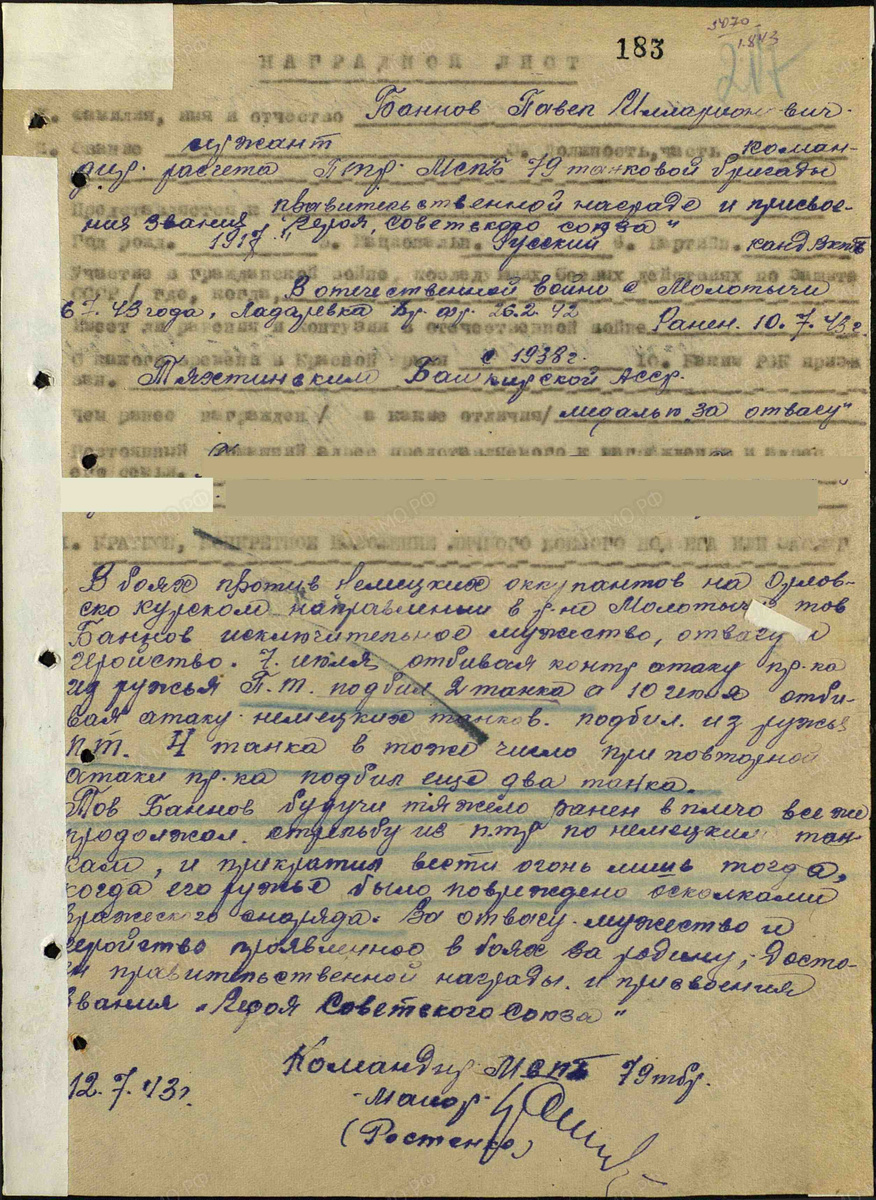 183
1843
217
НАГРАДНОЙ ЛИСТ
1. Фамилия, имя и отчество Баннов Павел Илларионович.
2. Звание сужант 3. Должность, часть коман-
дир. расчета Птр. МСПБ 79 танковой бригады
Представляется к правительственной награде и присвое-
ния звания "Героя, Советского союза"
Год рожд. 1917. 5. Национальн. Русский 6. Партийн. канд ВКПБ
Участие в гражданской войне, последующих боевых действиях по защите
СССР / где, когда, В отечественной войне с Молотычи
6 7. 43 года, Ладаревка Бр. фр. 26.2.42
Имеет ли ранения и контузии в отечественной войне Ранен. 10.7.43г.
С какого времени в Красной армии с 1938г. 10. Каким РВК призван
ван. Тяхтинским Башкирской Асср.
чем ранее награжден / за какие отличия/ медалью „За отвагу"
Постоянный домашний адрес представляемого к награждению и адрес
его семьи.
I. КРАТКОЕ, КОНКРЕТНОЕ ИЗЛОЖЕНИЕ ЛИЧНОГО БОЕВОГО ПОДВИГА ИЛИ ЗАСЛУГ
В боях против немецких оккупантов на Орлов-
ско курском направлении в р-не Молотычи тов
Баннов исключительное мужество, отвагу и
геройство. 7. июля отбивая контр атаку пр-ка
из ружья П.т. подбил 2 танка а 10 июля отби-
вая атаку немецких танков. подбил. из ружья
п.т. 4 танка в тоже число при повторной
атаки пр-ка подбил еще два танка.
Тов Баннов будучи тяжело ранен в плечо все же
продолжал. стрельбу из птр по немецким тан-
кам, и прикратил вести огонь лишь тогда,
когда его ружье было повреждено осколками
вражеского снаряда. За отвагу. мужество и
геройство проявленное в боях за родину, досто-
ен правительственной награды. и присвоения
звания „Героя Советского Союза"
Командир МСПБ 79 тбр.
12.7.43г. майор.
(Ростенко)